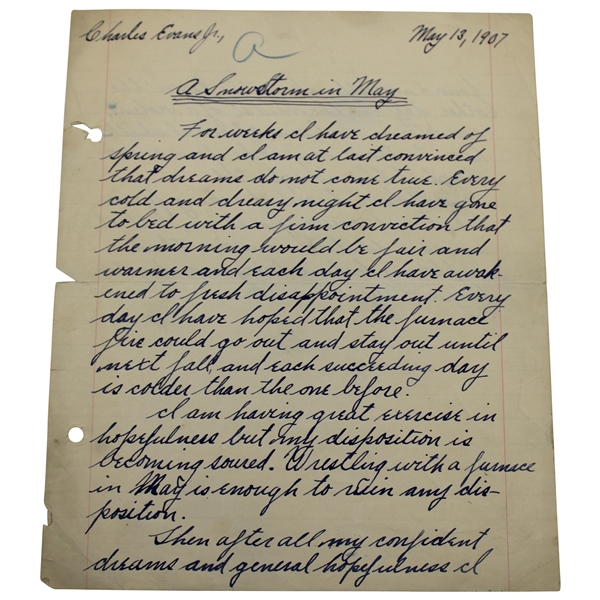 Charles Evans Jr., a May 13, 1907
A Snowstorm in May
For weeks I have dreamed of
spring and I am at last convinced
that dreams do not come true. Every
cold and dreary night I have gone
to bed with a firm conviction that
the morning would be fair and
warmer and each day I have awak-
ened to fresh disappointment. Every
day I have hoped that the furnace
fire could go out and stay out until
next fall, and each succeeding day
is colder than the one before.
I am having great exercise in
hopefulness but my disposition is
becoming soured. Wrestling with a furnace
in May is enough to ruin any dis-
position.
Then after all my confident
dreams and general hopefulness I